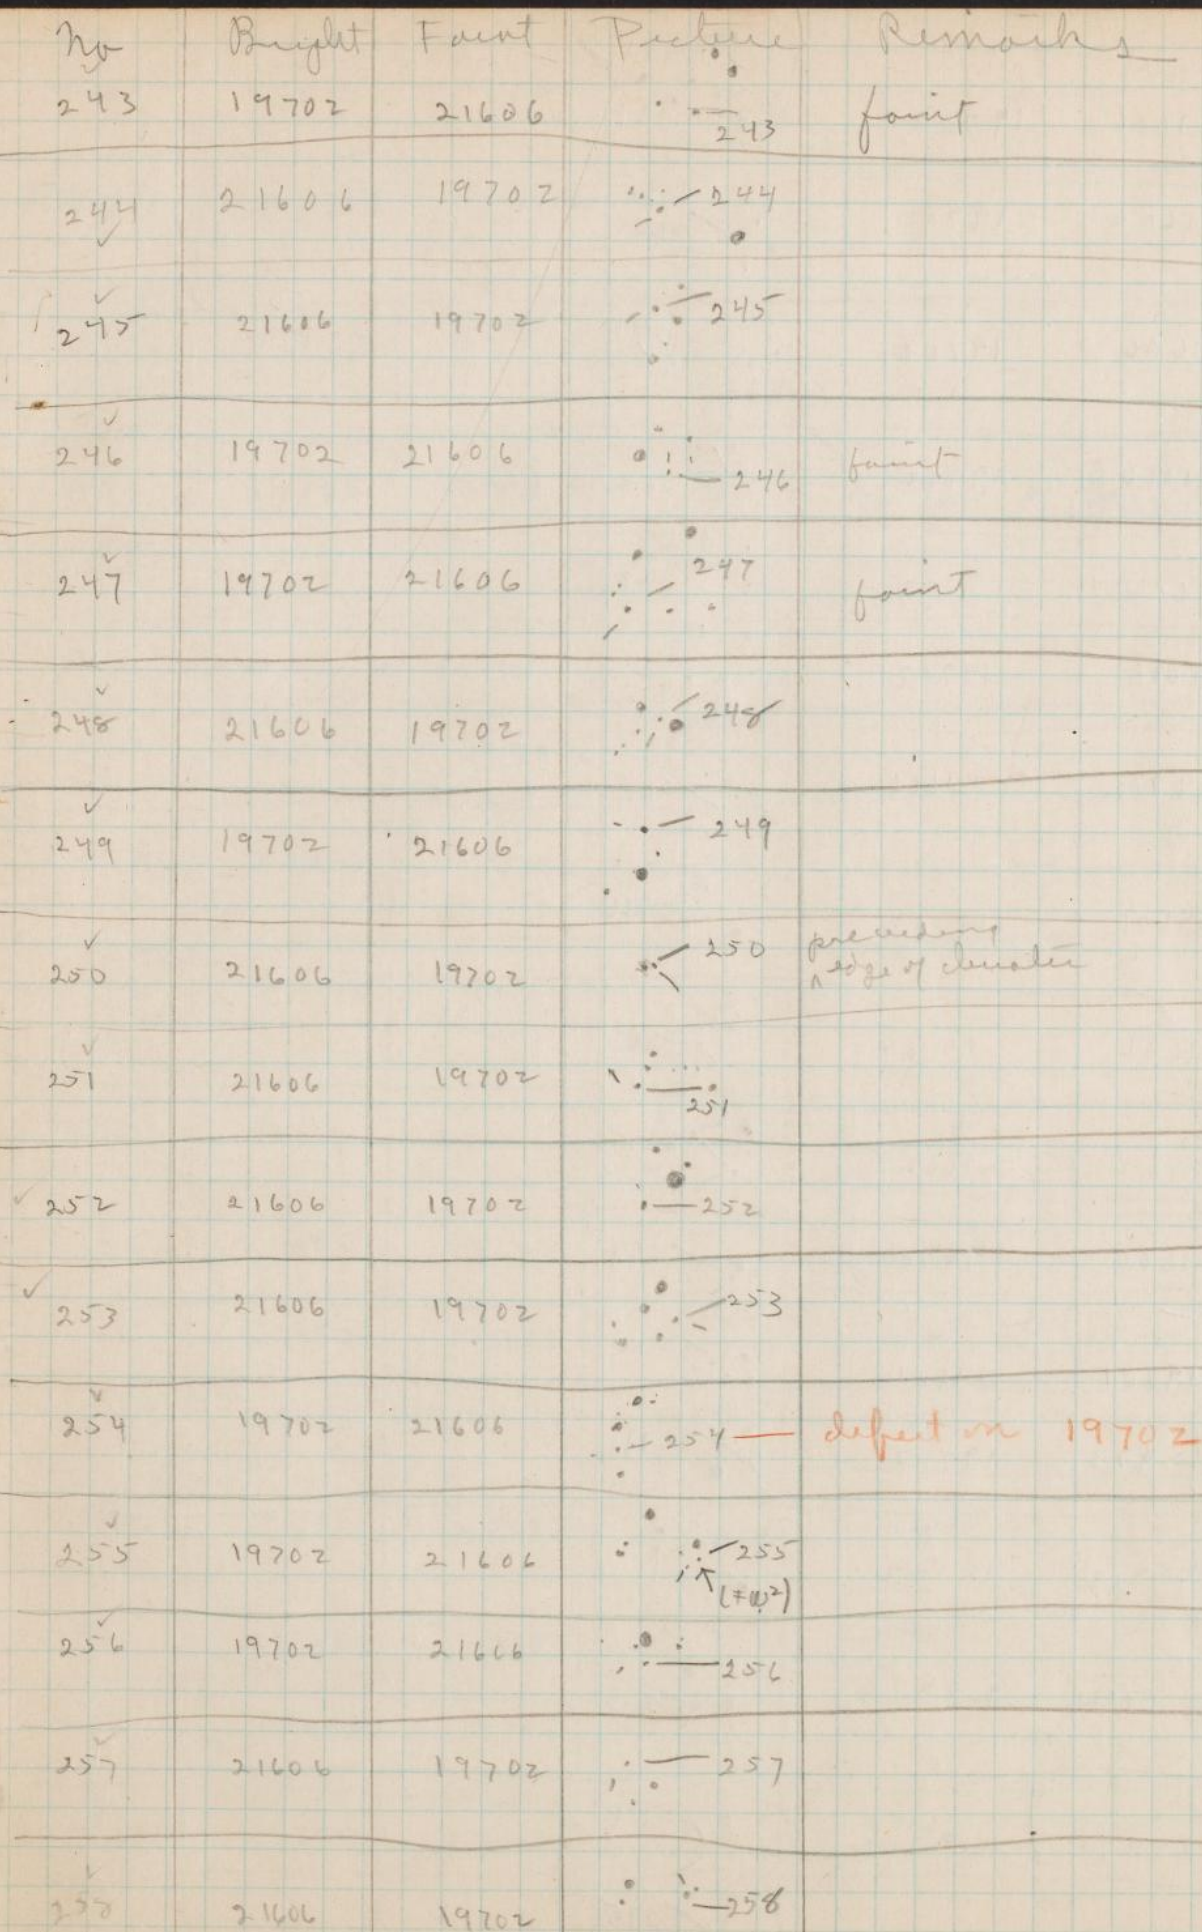 No Bright Faint Picture Remarks
243 19702 21606 243 faint
244 21606 19702 244
245 21606 19702 245
246 19702 21606 246 faint
247 19702 21606 247 faint
248 21606 19702 248
249 19702 21606 249
250 21606 19702 250 preceding
edge of cluster
251 21606 19702 251
252 21606 19702 252
253 21606 19702 253
254 19702 21606 254 — defect on 19702
255 19702 21606 255
256 19702 21606 256
257 21606 19702 257
258 21606 19702 258